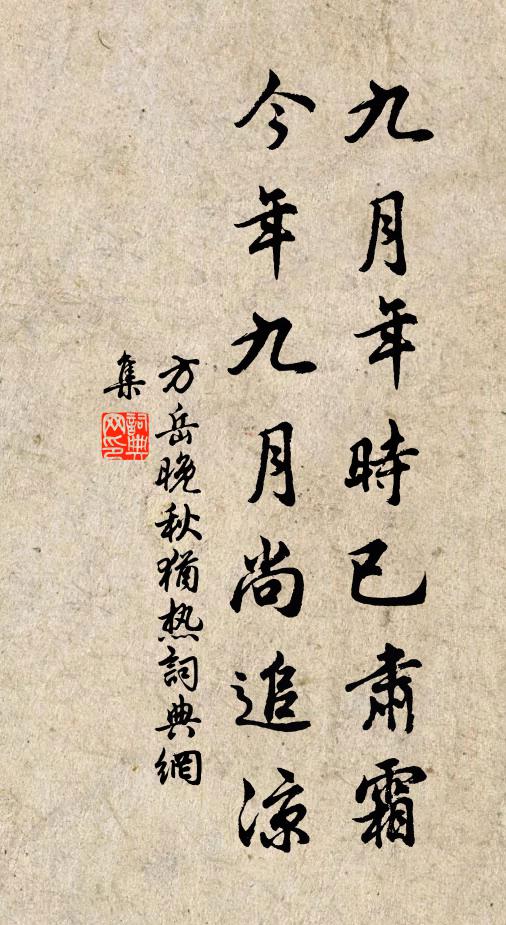 九月年時已肅霜
今年九月尚追涼
方岳晚秋猶热詞典網
集
詞典网印